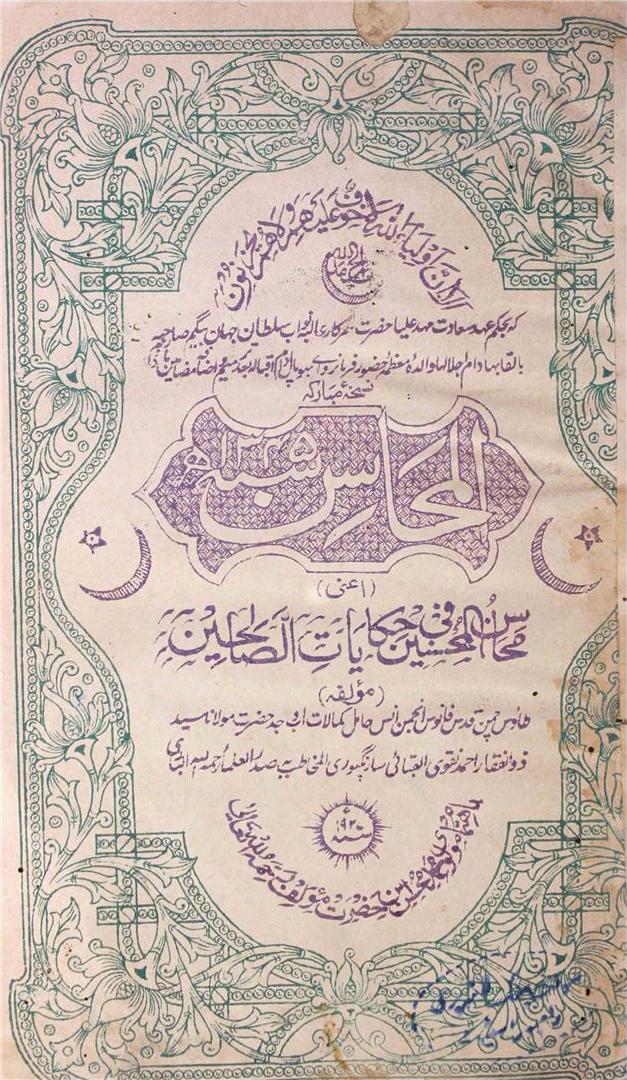 الا ان اولیاء الله لا خوف علیهم ولا هم یحزنون
الحمد لله
کہ بحکم عہد سعادت مہد علیا حضرت سرکار عالیہ نواب سلطان جہان بیگم صاحبہ
بالقابہا دام اجلالہا والدۂ معظمہ حضور فرمانروائے بھوپال دام اقبالہ بعد تصحیح اضافہ مضامین
نسخۂ مبارکہ
المحاسن
۱۳۲۵
(اعنی)
محاسن المحسنین فی حکایات الصالحین
(مؤلفہ)
طاؤس چمن قدس فانوس انجمن انس حامل کمالات اوحد حضرت مولانا سید
ذوالفقار احمد نقوی سارنگپوری المخاطب بہ صدر العلما رحمہ اللہ الباری
سنہ ۱۹۲۰ء
حضرت مؤلف رحمہ اللہ تعالی